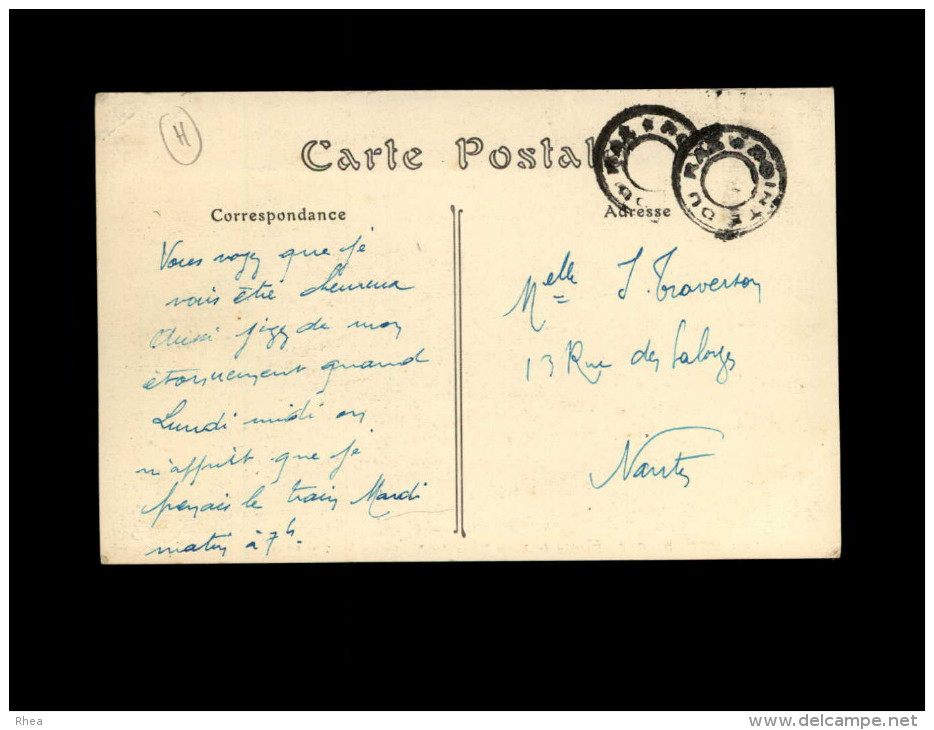 H
Carte Postale
POINTE DU RAZ
POINTE DU RAZ
Correspondance
Adresse
Vous voyez que je
vais être heureux
Aussi jugez de mon
étonnement quand
Lundi midi on
m'apprit que je
prenais le train Mardi
matin à 7h.
Melle J. Traverson
13 Rue des
Nantes
Rhea
www.delcampe.net